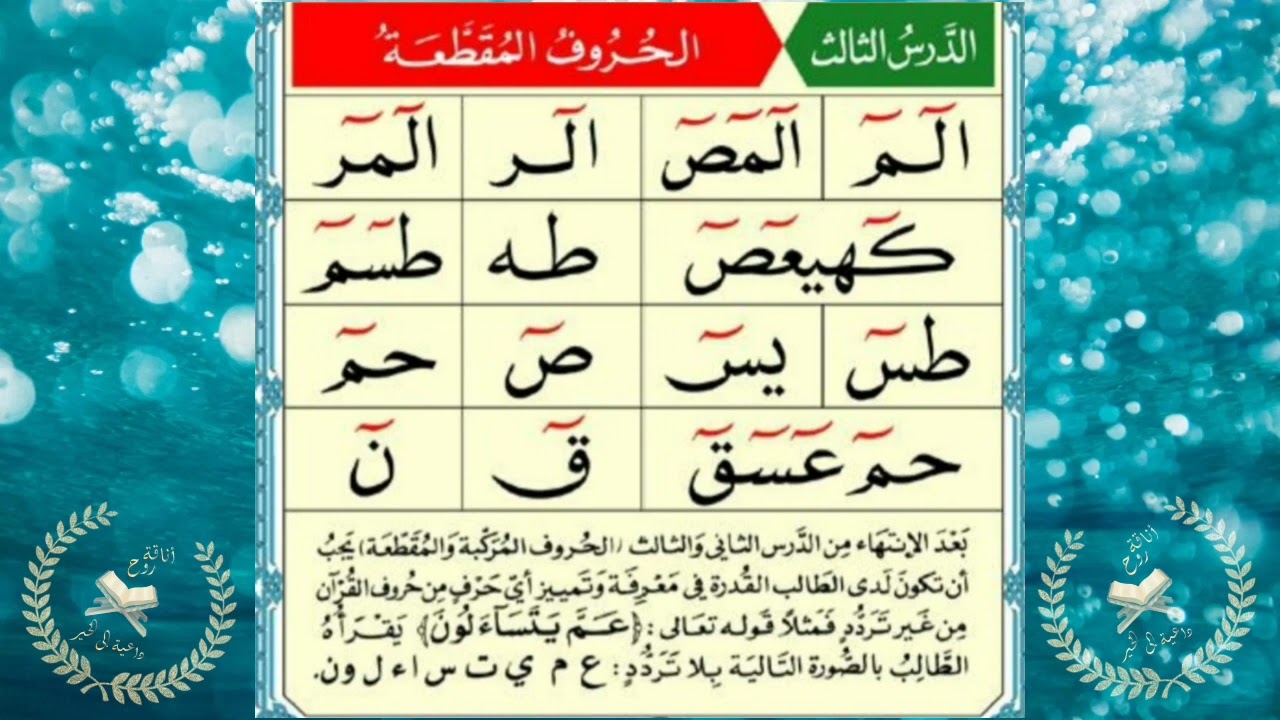 الدَّرسُ الثالث
الحُرُوفُ المُقَطَّعَةُ
الٓمٓ الٓمٓصٓ الٓر الٓمٓر
كٓهيعٓصٓ طه طسٓمٓ
طسٓ يسٓ صٓ حمٓ
حمٓ عٓسٓقٓ قٓ نٓ
بَعْدَ الإِنتِهَاء مِنَ الدَّرسِ الثاني وَالثالث (الحُروف المُرَكَّبة وَالمُقَطَّعَة) يَجِبُ
أن تكونَ لَدى الطَالب القُدرَة في مَعْرِفَة وَتَمييز أيّ حَرْفٍ مِن حُروف القُرْآن
مِن غَير تَرَدُّدٍ فَمَثلاً قَوله تعَالى : ﴿عَمَّ يَتَسَآءَلُونَ﴾ يَقْرَأهُ
الطَّالِبُ بالصُّورة التَاليَة بِلا تَرَدُّدٍ : ع م ي ت س ا ء ل و ن.
أناقة
روح
داعية إلى الخير
أناقة
روح
داعية إلى الخير